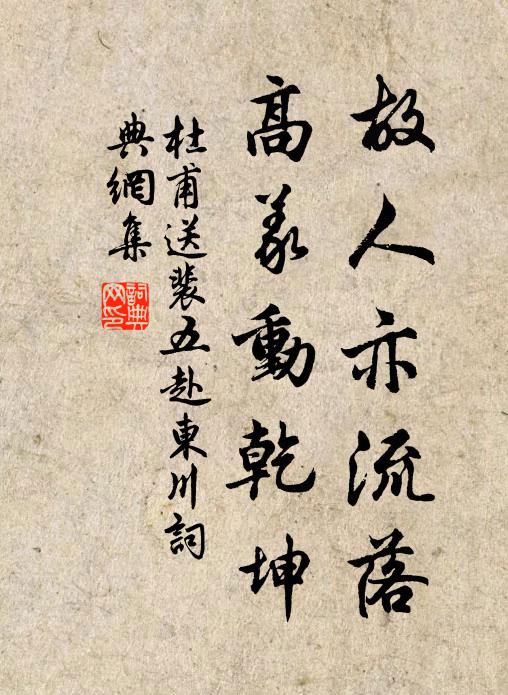 故人亦流落
高義動乾坤
杜甫送裴五赴東川詞
典網集
詞典网印